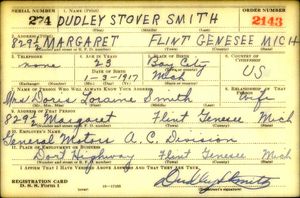 SERIAL NUMBER 1. NAME (Print) ORDER NUMBER
274 DUDLEY STOVER SMITH 2143
2. ADDRESS (Print)
829½ MARGARET FLINT GENESEE MICH
3. TELEPHONE 4. AGE IN YEARS 5. PLACE OF BIRTH 6. COUNTRY OF CITIZENSHIP
none 23 Bay City
DATE OF BIRTH
1-3-1917 Mich US
7. NAME OF PERSON WHO WILL ALWAYS KNOW YOUR ADDRESS 8. RELATIONSHIP OF THAT PERSON
Mrs Doris Loraine Smith Wife
9. ADDRESS OF THAT PERSON
829½ Margaret Flint Genesee Mich
10. EMPLOYER'S NAME
General Motors A.C. Division
11. PLACE OF EMPLOYMENT OR BUSINESS
Dort Highway Flint Genesee Mich
I AFFIRM THAT I HAVE VERIFIED ABOVE ANSWERS AND THAT THEY ARE TRUE.
REGISTRATION CARD
D. S. S. FORM 1